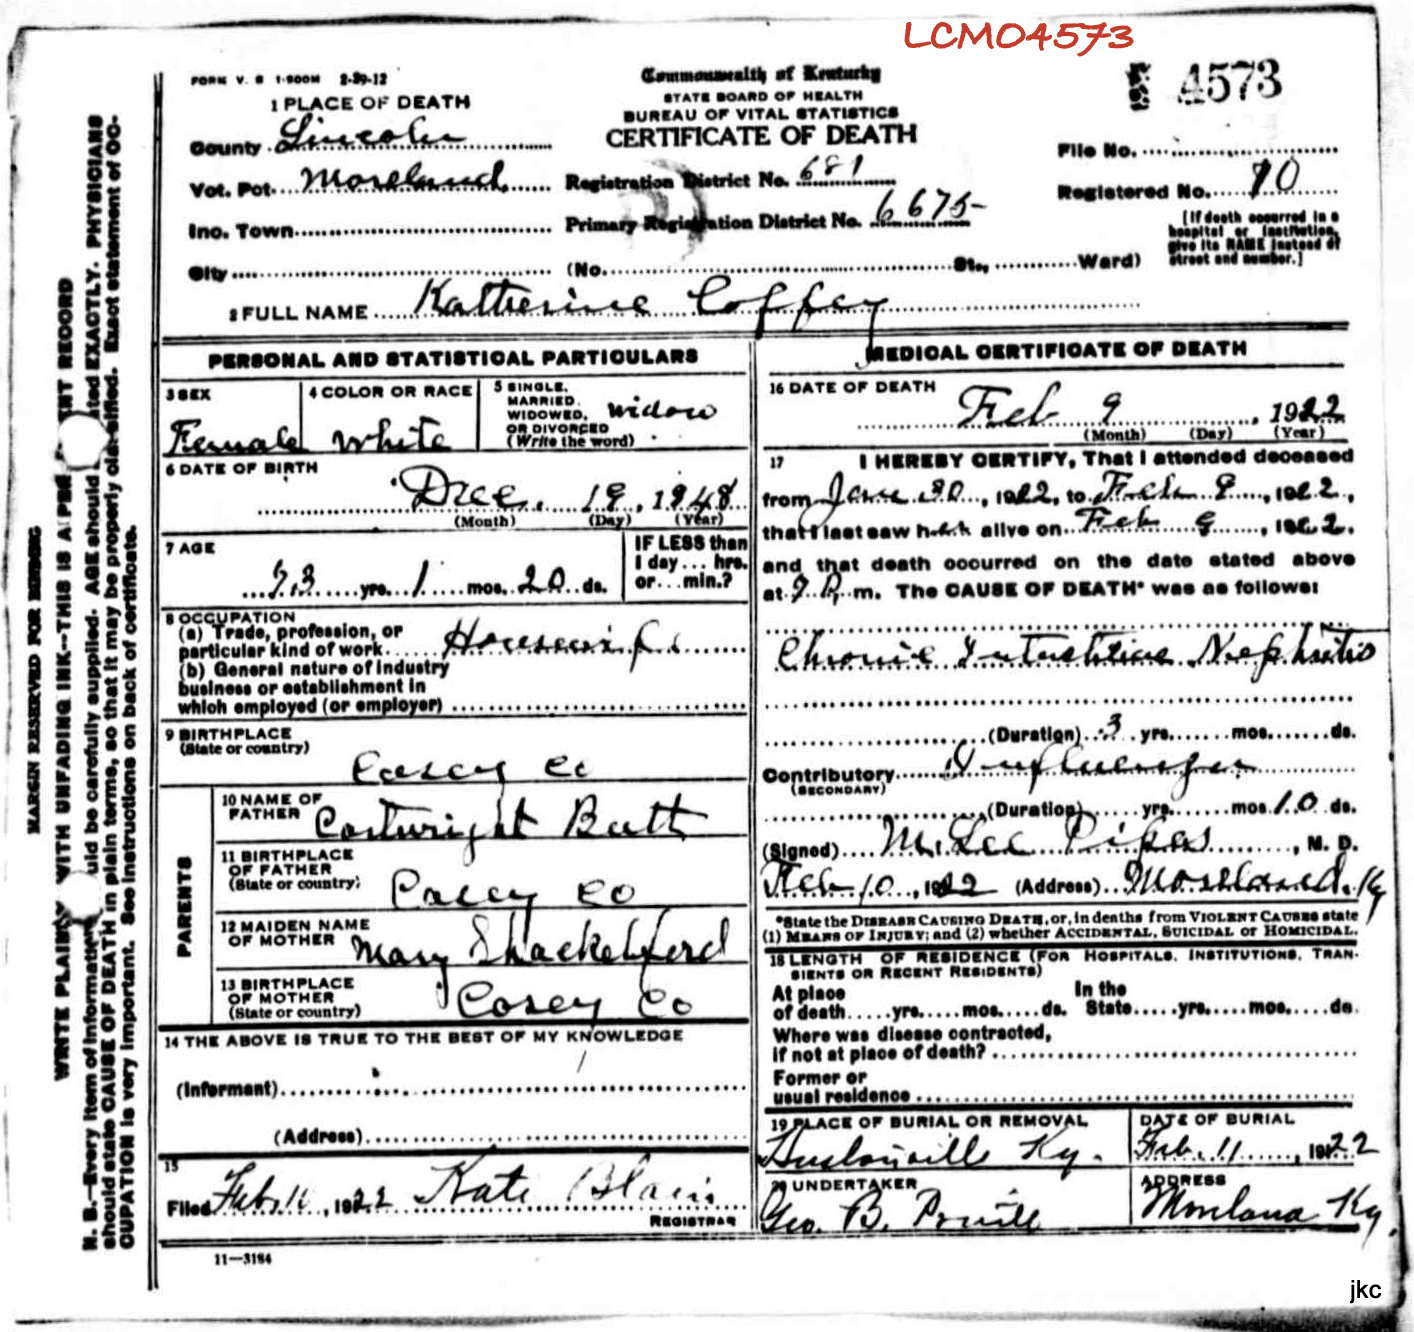 LCMO4573
FORM V. S 1-500M 2-29-12
Commonwealth of Kentucky
STATE BOARD OF HEALTH
BUREAU OF VITAL STATISTICS
CERTIFICATE OF DEATH
4573
1 PLACE OF DEATH
County Lincoln
Vot. Pct. Moreland
Inc. Town
City
Registration District No. 681
Primary Registration District No. 6675
(No. St., Ward)
File No.
Registered No. 10
[If death occurred in a
hospital or institution,
give its NAME instead of
street and number.]
2 FULL NAME Katherine Coffey
PERSONAL AND STATISTICAL PARTICULARS
3 SEX
Female
4 COLOR OR RACE
White
5 SINGLE,
MARRIED,
WIDOWED,
OR DIVORCED
(Write the word)
Widow
6 DATE OF BIRTH
Dec. 19, 1848
(Month) (Day) (Year)
7 AGE
73 yrs. 1 mos. 20 ds.
IF LESS than
1 day... hrs.
or...min.?
8 OCCUPATION
(a) Trade, profession, or
particular kind of work Housewife
(b) General nature of industry
business or establishment in
which employed (or employer)
9 BIRTHPLACE
(State or country)
Casey Co
PARENTS
10 NAME OF
FATHER
Cartwright Butt
11 BIRTHPLACE
OF FATHER
(State or country)
Casey Co
12 MAIDEN NAME
OF MOTHER
Mary Shackelford
13 BIRTHPLACE
OF MOTHER
(State or country)
Casey Co
14 THE ABOVE IS TRUE TO THE BEST OF MY KNOWLEDGE
(Informant)
(Address)
15
Filed Feb. 10, 1922 Kate Blain
REGISTRAR
11—3184
MEDICAL CERTIFICATE OF DEATH
16 DATE OF DEATH
Feb 9, 1922
(Month) (Day) (Year)
17 I HEREBY CERTIFY, That I attended deceased
from Jan 30, 1922, to Feb 9, 1922,
that I last saw her alive on Feb 9, 1922.
and that death occurred on the date stated above
at P. m. The CAUSE OF DEATH* was as follows:
Chronic Interstitial Nephritis
(Duration) 3 yrs. mos. ds.
Contributory Influenza
(SECONDARY)
(Duration) yrs. mos. 10 ds.
(Signed) M. Lee Pipes, M. D.
Feb 10, 1922 (Address) Moreland. Ky
*State the DISEASE CAUSING DEATH, or, in deaths from VIOLENT CAUSES state
(1) MEANS OF INJURY; and (2) whether ACCIDENTAL, SUICIDAL or HOMICIDAL.
18 LENGTH OF RESIDENCE (FOR HOSPITALS, INSTITUTIONS, TRAN-
SIENTS OR RECENT RESIDENTS)
At place In the
of death yrs. mos. ds. State yrs. mos. ds.
Where was disease contracted,
if not at place of death?
Former or
usual residence
19 PLACE OF BURIAL OR REMOVAL
Hustonville Ky.
DATE OF BURIAL
Feb. 11, 1922
20 UNDERTAKER
Geo. B.
ADDRESS
Moreland Ky.
MARGIN RESERVED FOR BINDING
WRITE PLAINLY WITH UNFADING INK—THIS IS A PERMANENT RECORD
N. B.—Every item of information should be carefully supplied. AGE should be stated EXACTLY. PHYSICIANS
should state CAUSE OF DEATH in plain terms, so that it may be properly classified. Exact statement of OC-
CUPATION is very important. See instructions on back of certificate.
jkc